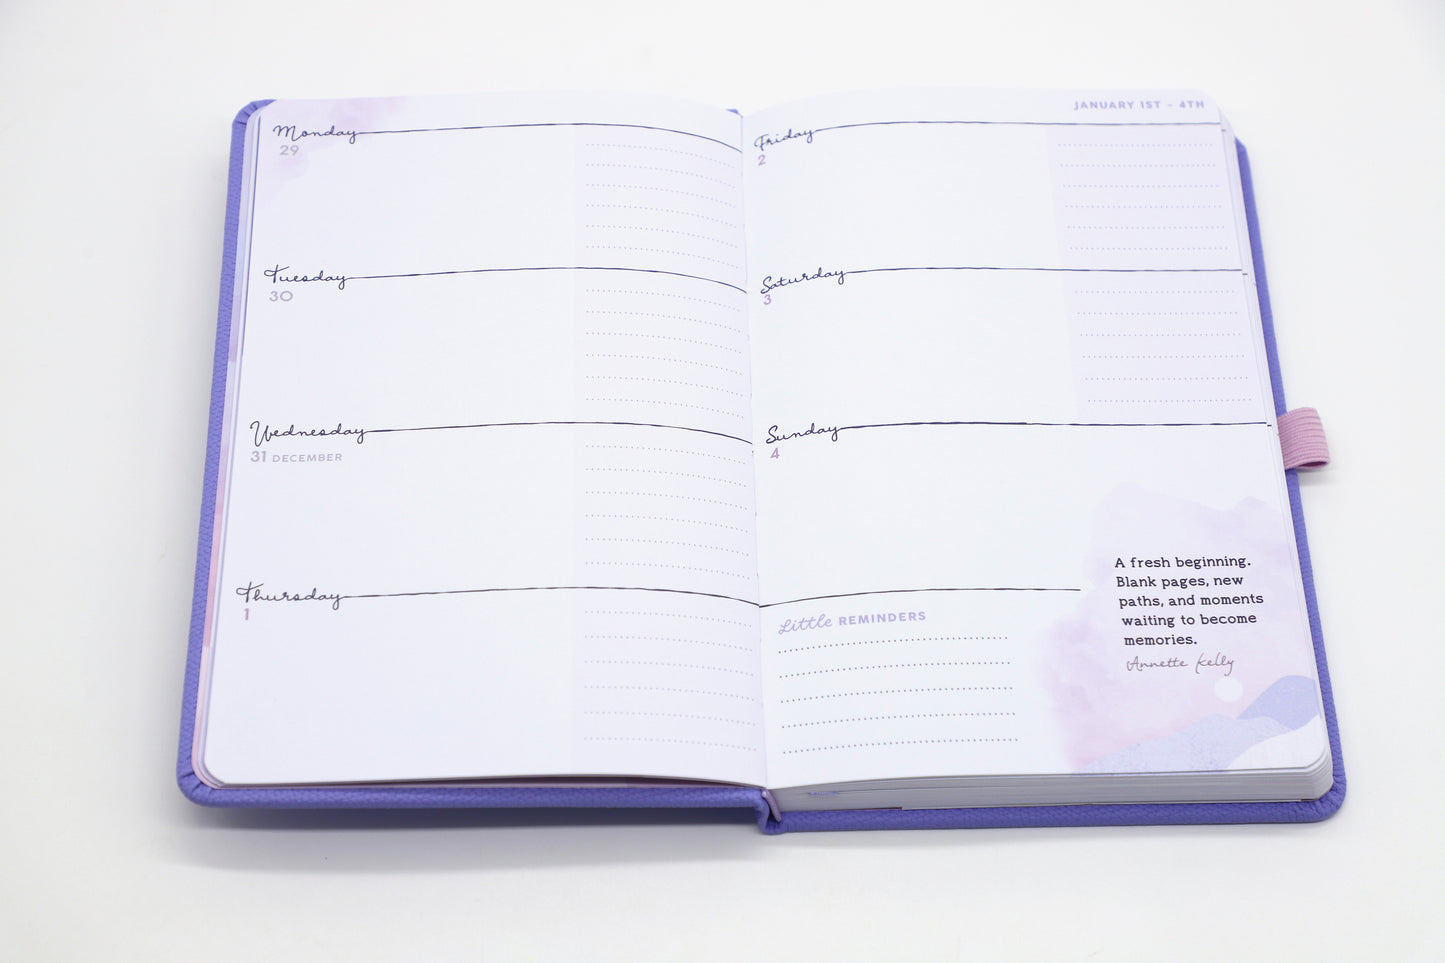 Monday
29
Tuesday
30
Wednesday
31 DECEMBER
Thursday
1
JANUARY 1ST - 4TH
Friday
2
Saturday
3
Sunday
4
Little REMINDERS
A fresh beginning.
Blank pages, new
paths, and moments
waiting to become
memories.
Annette Kelly